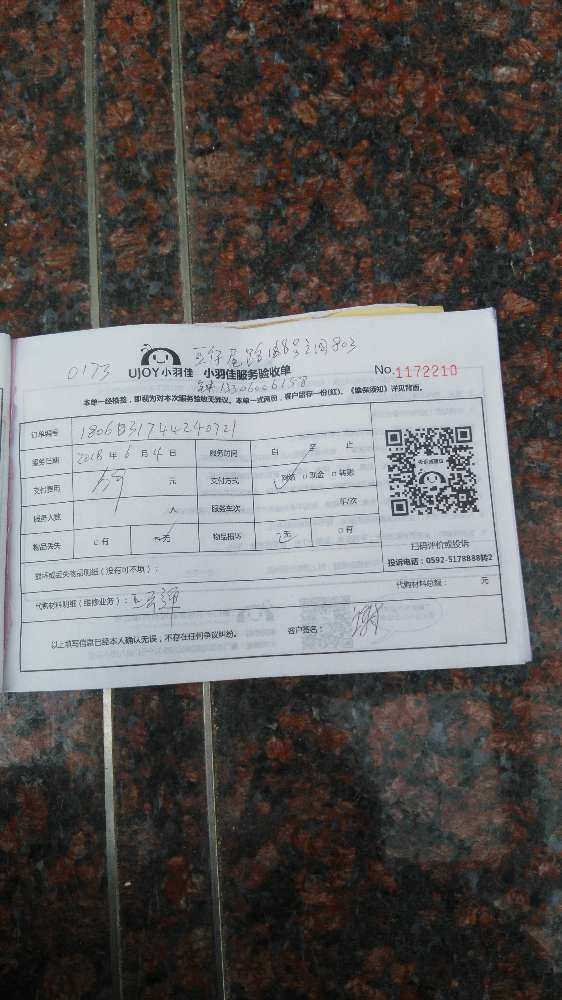 0173
UJOY小羽佳 小羽佳服务验收单
No.1172210
13306006158
本单一经检验，即视为对本次服务验收无异议。本单一式两份，客户留存一份(红)。《撤保须知》详见背面。
订单编号
服务日期 2018 年 6 月 4 日 服务时间 自 至 止
支付费用 元 支付方式 现金 转账
服务人数 人 服务车次 车/次
物品丢失 有 无 物品损坏 无 有
扫码评价或投诉
投诉电话：0592-5178888转2
损坏或丢失物品明细（没有可不填）：
代购材料明细（维修业务）： 代购材料总额： 元
以上填写信息已经本人确认无误，不存在任何争议纠纷。 客户签名： 谢